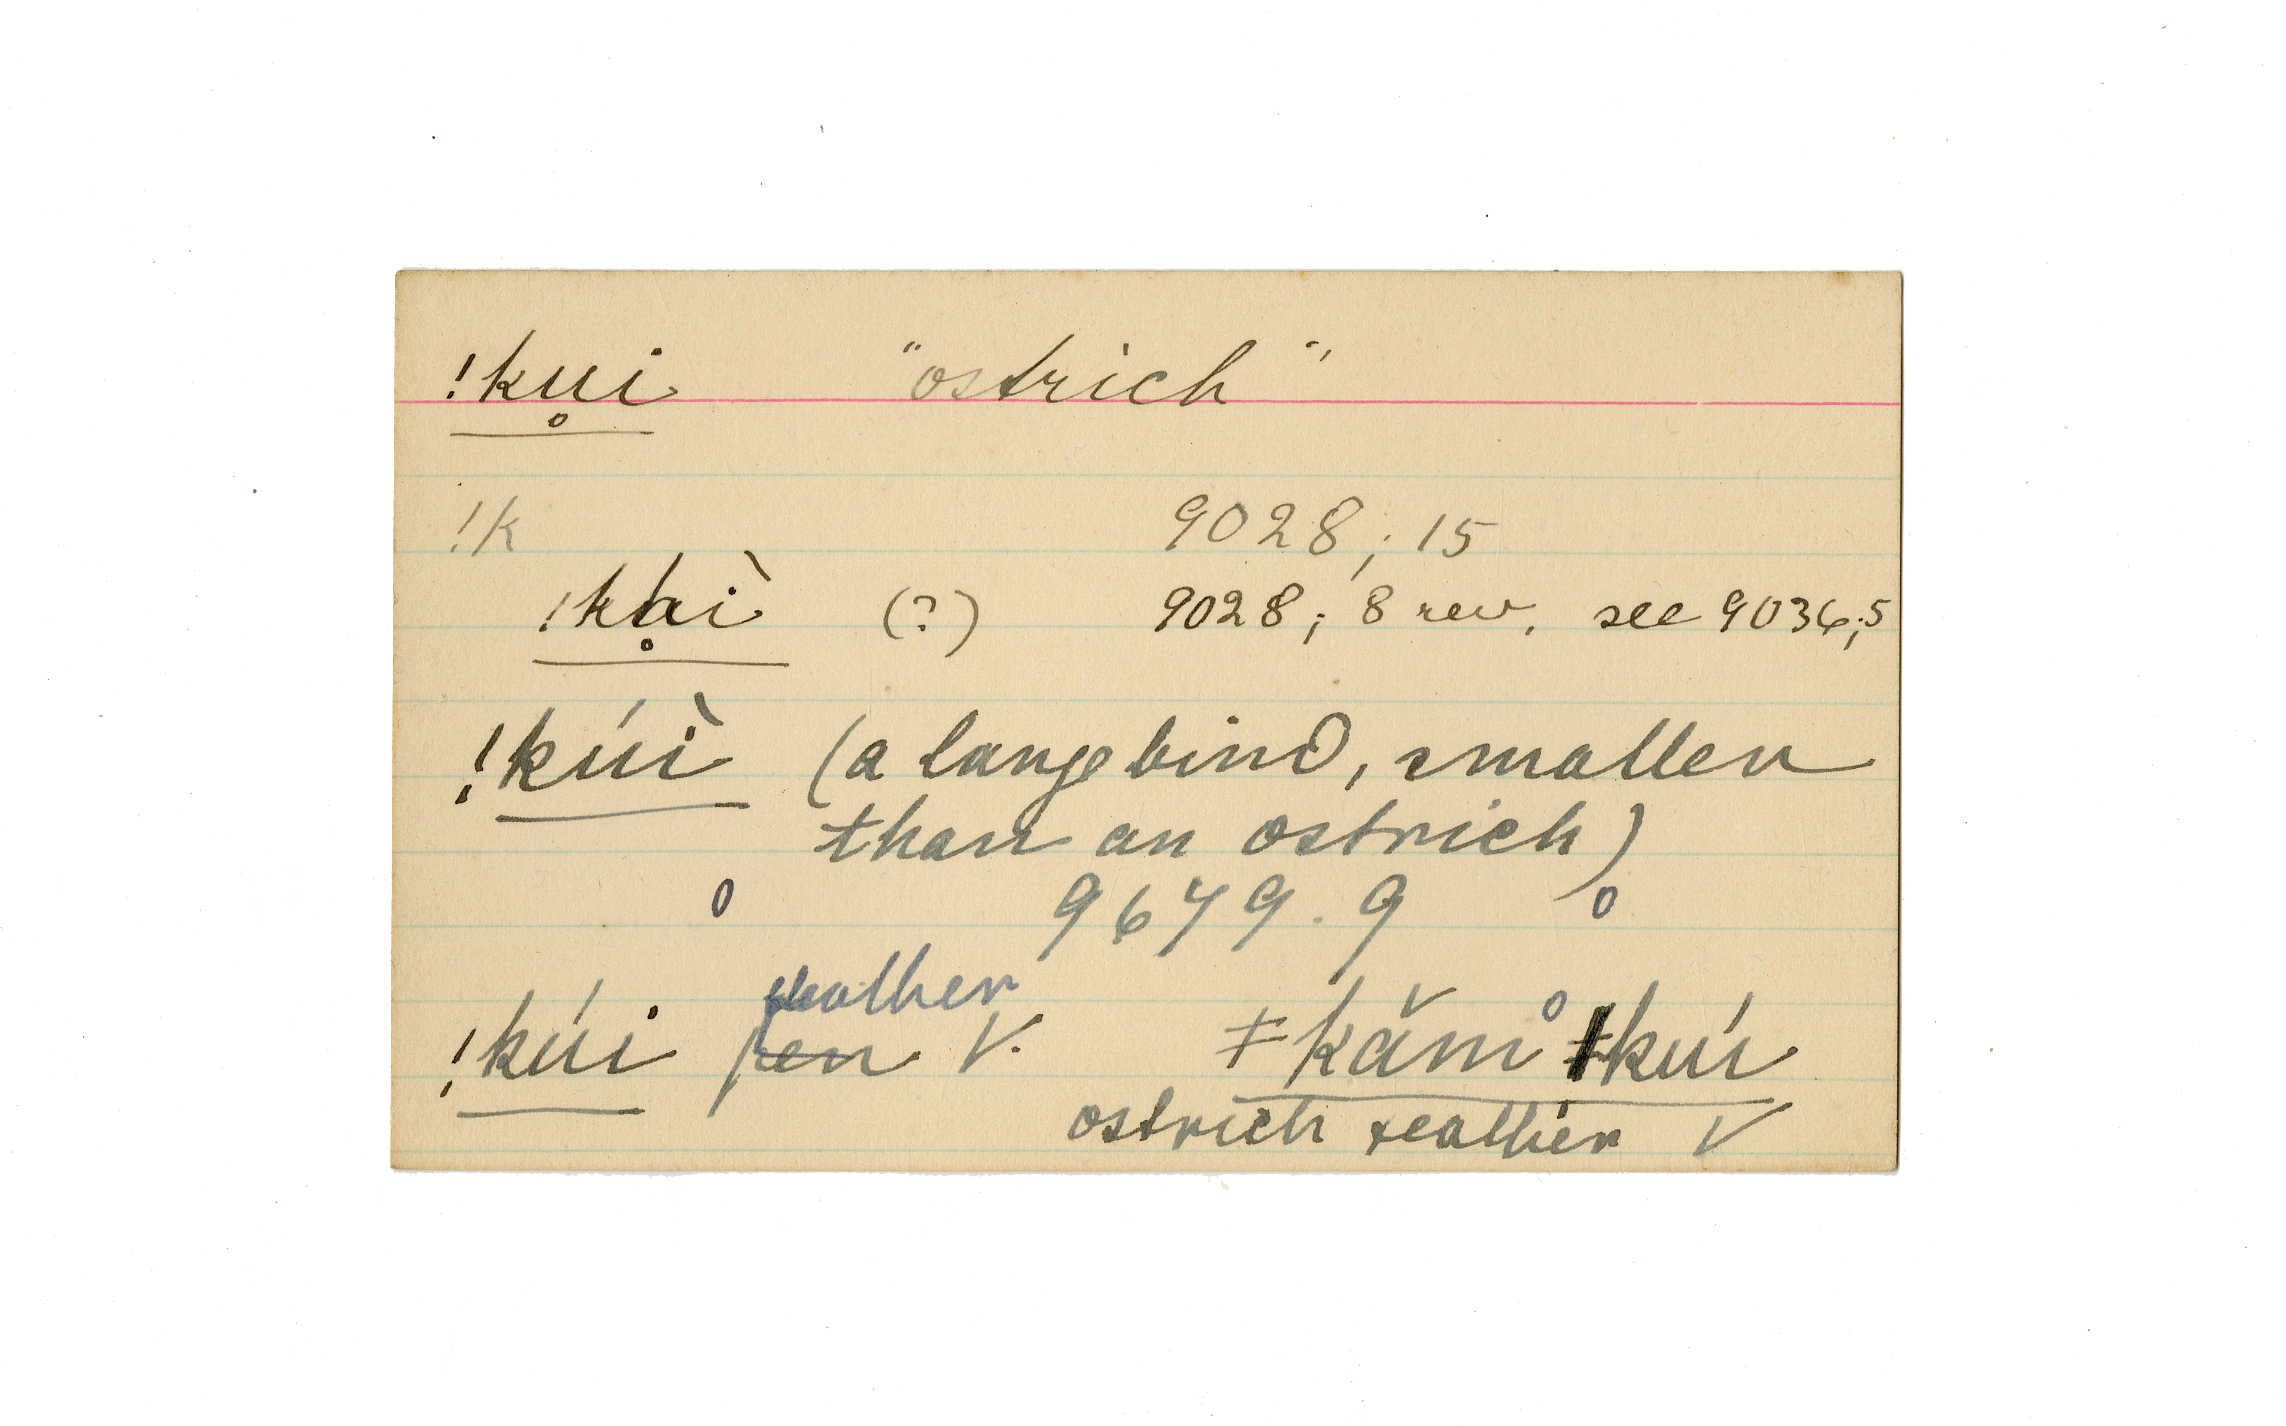 !ku̥i "ostrich"
!k 9028; 15
!kúì̥ (?) 9028; 8 rev. see 9036;5
!kúì (a large bird, smaller
than an ostrich)
0 9679.9 0
feather
!kúi pen V. ǂkăm° !kúi
ostrich feather V